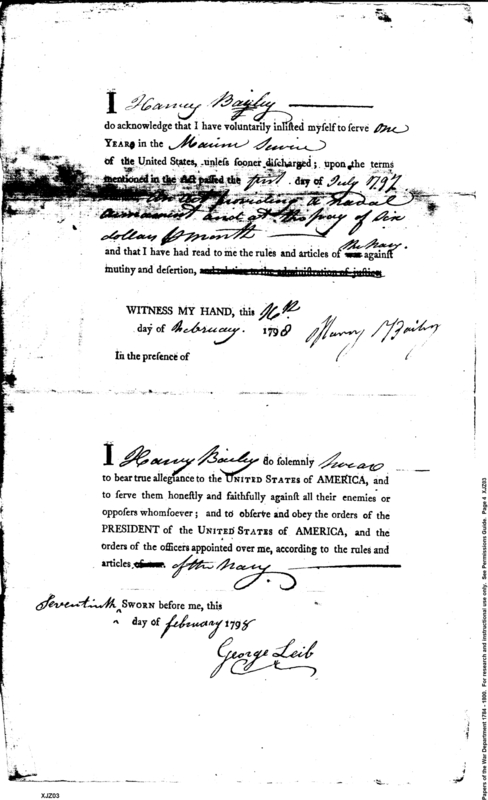 I Harvey Bayley
do acknowledge that I have voluntarily inlisted myself to serve one
YEARs in the Marine Service
of the United States, unless sooner discharged; upon the terms
mentioned in the Act passed the first day of July 1797
An act providing a Naval
armament and at the pay of Six
dollars month
and that I have had read to me the rules and articles of war the Navy. against
mutiny and desertion, and relation to the administration of justice.
WITNESS MY HAND, this 16th
day of February. 1798 Harvey Bailey
In the presence of
I Harvey Bailey do solemnly swear
to bear true allegiance to the UNITED STATES of AMERICA, and
to serve them honestly and faithfully against all their enemies or
opposers whomsoever; and to observe and obey the orders of the
PRESIDENT of the UNITED STATES of AMERICA, and the
orders of the officers appointed over me, according to the rules and
articles of war. of the Navy
Seventinth SWORN before me, this
day of february 1798
George Leib
XJZ03
Papers of the War Department 1784 - 1800. For research and instructional use only. See Permissions Guide. Page 4 XJZ03